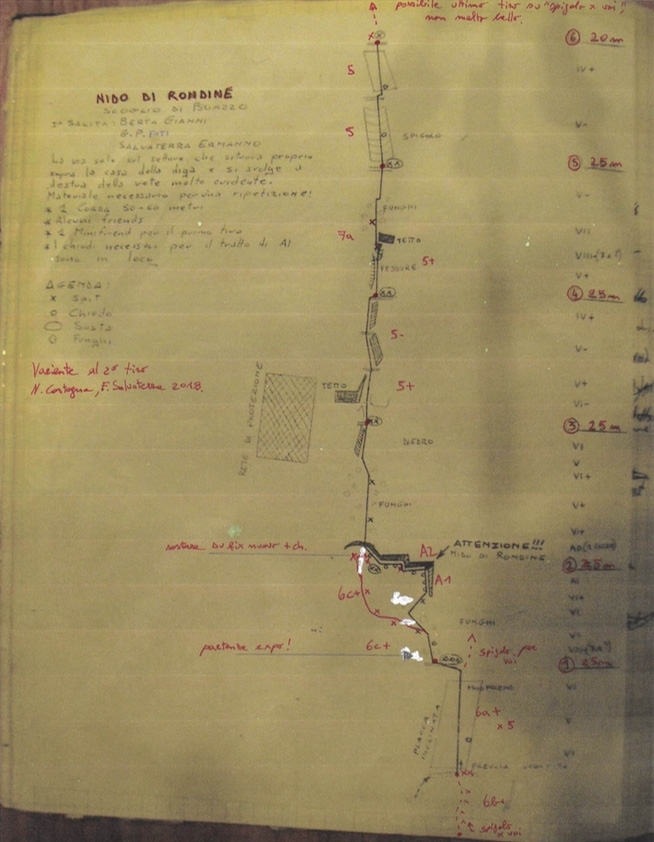 possibile ultimo tiro su "spigolo x voi",
non molto bello.
⑥ 20 m
5
IV+
NIDO DI RONDINE
SCOGLIO DI BOAZZO
1ª SALITA: BERTA GIANNI
G.P. FITI
SALVATERRA ERMANNO
5
SPIGOLO
V-
La via sale sul settore che si trova proprio
sopra la casa della diga e si svolge a
destra della rete molto evidente.
Materiale necessario per una ripetizione!
* 1 Corda 50-60 metri
* Alcuni friends
* 1 Minifriend per il primo tiro
* I chiodi necessari per il tratto di A1
sono in loco
⑤ 25 m
V-
FUNGHI
7a
TETTO
VII
FESSURE
5+
VIII-(7a?)
V+
④ 25 m
LEGENDA:
x Spit
o Chiodo
Sosta
Funghi
IV+
5-
V-
Variante al 2º tiro
N. Castagna, F. Salvaterra 2018.
RETE DI PROTEZIONE
TETTO
5+
V+
VI-
③ 25 m
DIEDRO
VI
V
VI+
FUNGHI
V+
VI+
sostare su fix nuovo + ch.
A2
ATTENZIONE!!!
NIDO DI RONDINE
② 25 m
A1
A1
6c+
VI+
VI
FUNGHI
partenza expo!
6c+
spigolo per
voi
① 25 m
VI
6a+
x 5
V
PLACCA
INCLINATA
VI
6b+
spigolo
x voi